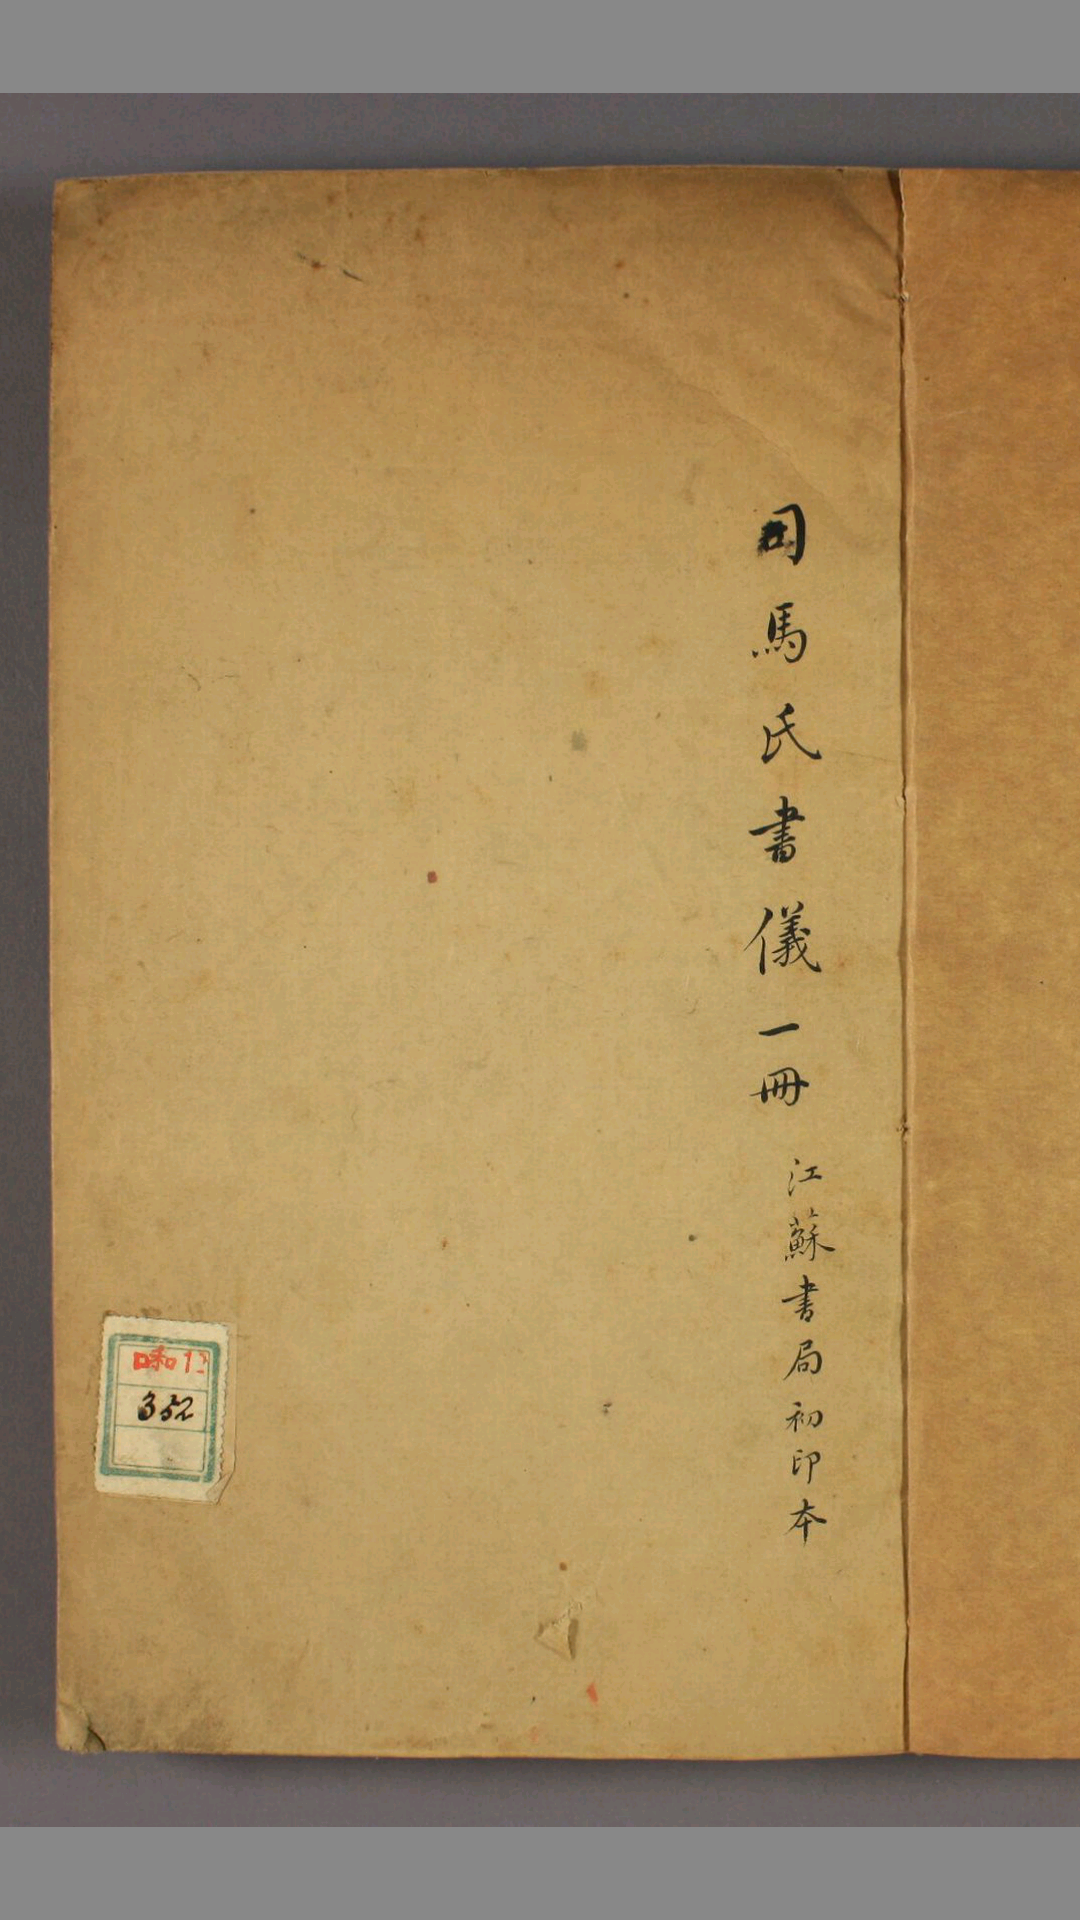 司馬氏書儀一冊 江蘇書局初印本
昭和12
352